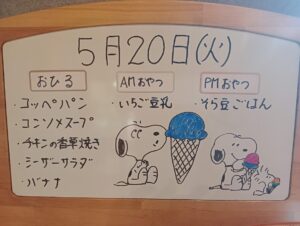 5月20日(火)
おひる
・コッペパン
・コンソメスープ
・チキンの香草焼き
・シーザーサラダ
・バナナ
AMおやつ
・いちご豆乳
PMおやつ
・そら豆ごはん